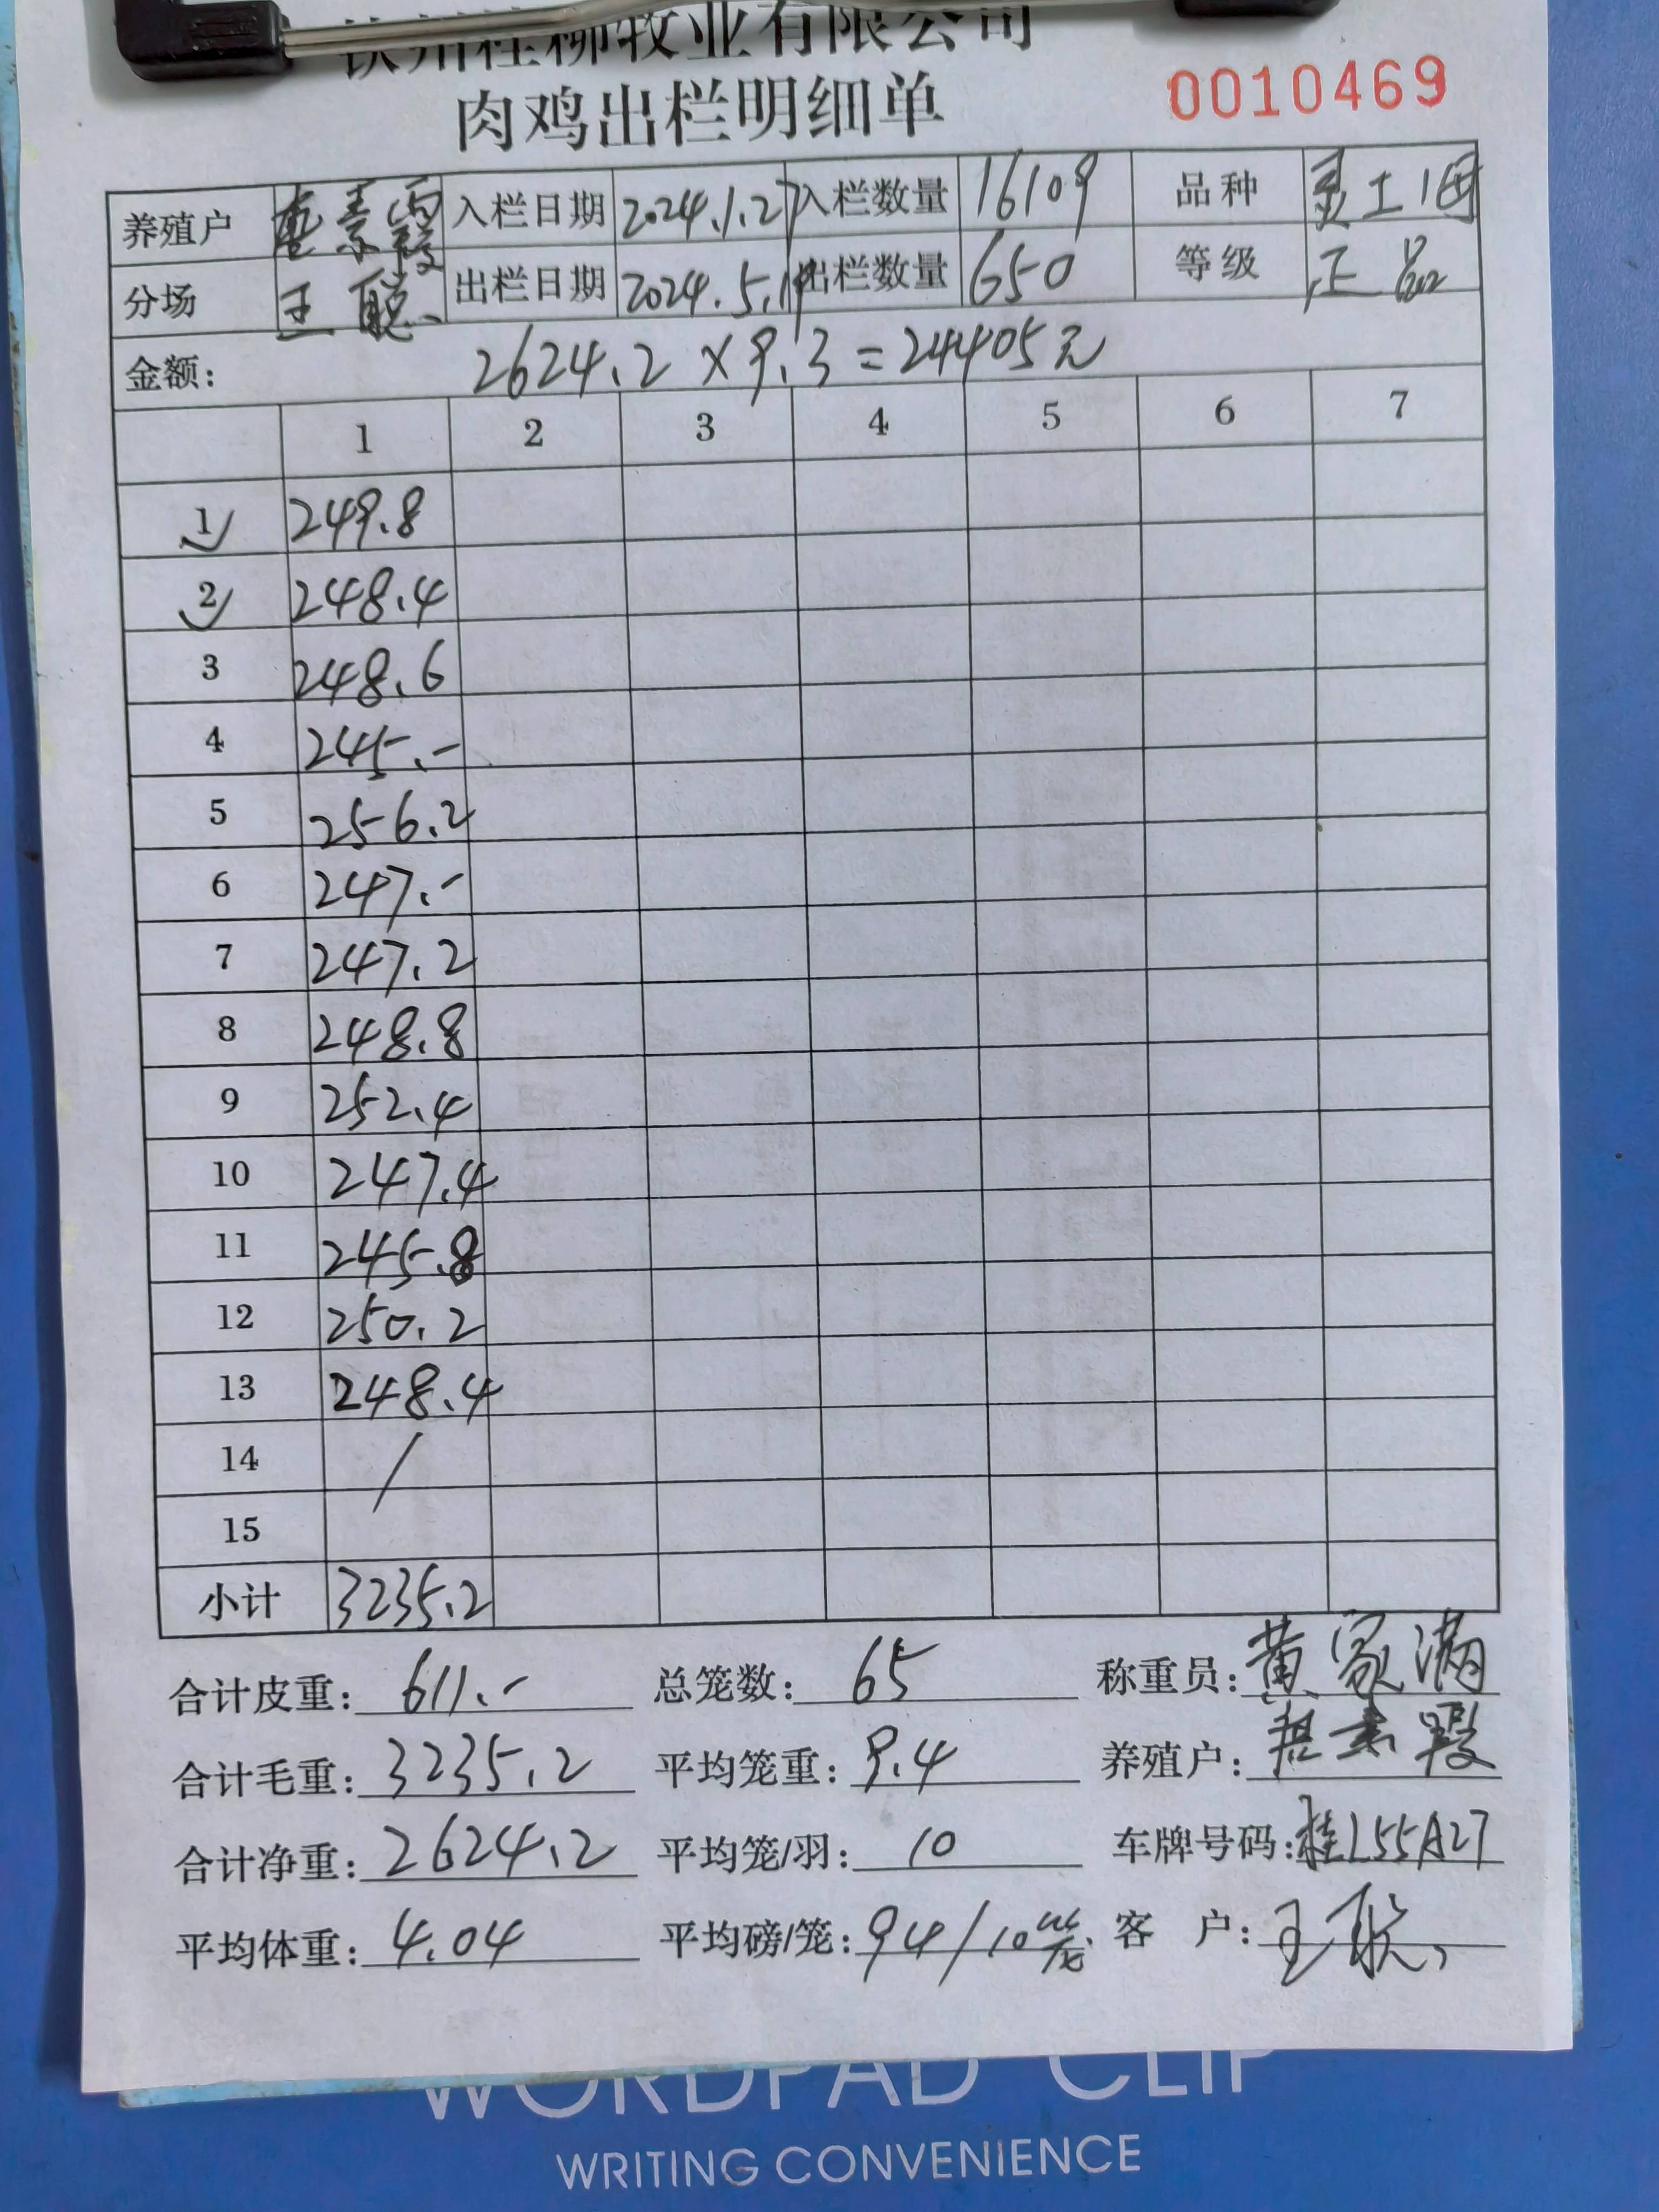 钦州桂柳牧业有限公司
肉鸡出栏明细单
0010469
养殖户 入栏日期 2024.1.27 入栏数量 16109 品种 灵土1母
分场 王聪 出栏日期 2024.5.19 出栏数量 650 等级 正品
金额: 2624.2×9.3=24405元
1 2 3 4 5 6 7
1 249.8
2 248.4
3 248.6
4 245.-
5 256.2
6 247.-
7 247.2
8 248.8
9 252.4
10 247.4
11 245.8
12 250.2
13 248.4
14 /
15
小计 3235.2
合计皮重: 611.- 总笼数: 65 称重员: 黄家满
合计毛重: 3235.2 平均笼重: 9.4 养殖户:
合计净重: 2624.2 平均笼/羽: 10 车牌号码: 桂L55A27
平均体重: 4.04 平均磅/笼: 94/10笼 客 户: 王聪
WORDPAD CLIP
WRITING CONVENIENCE